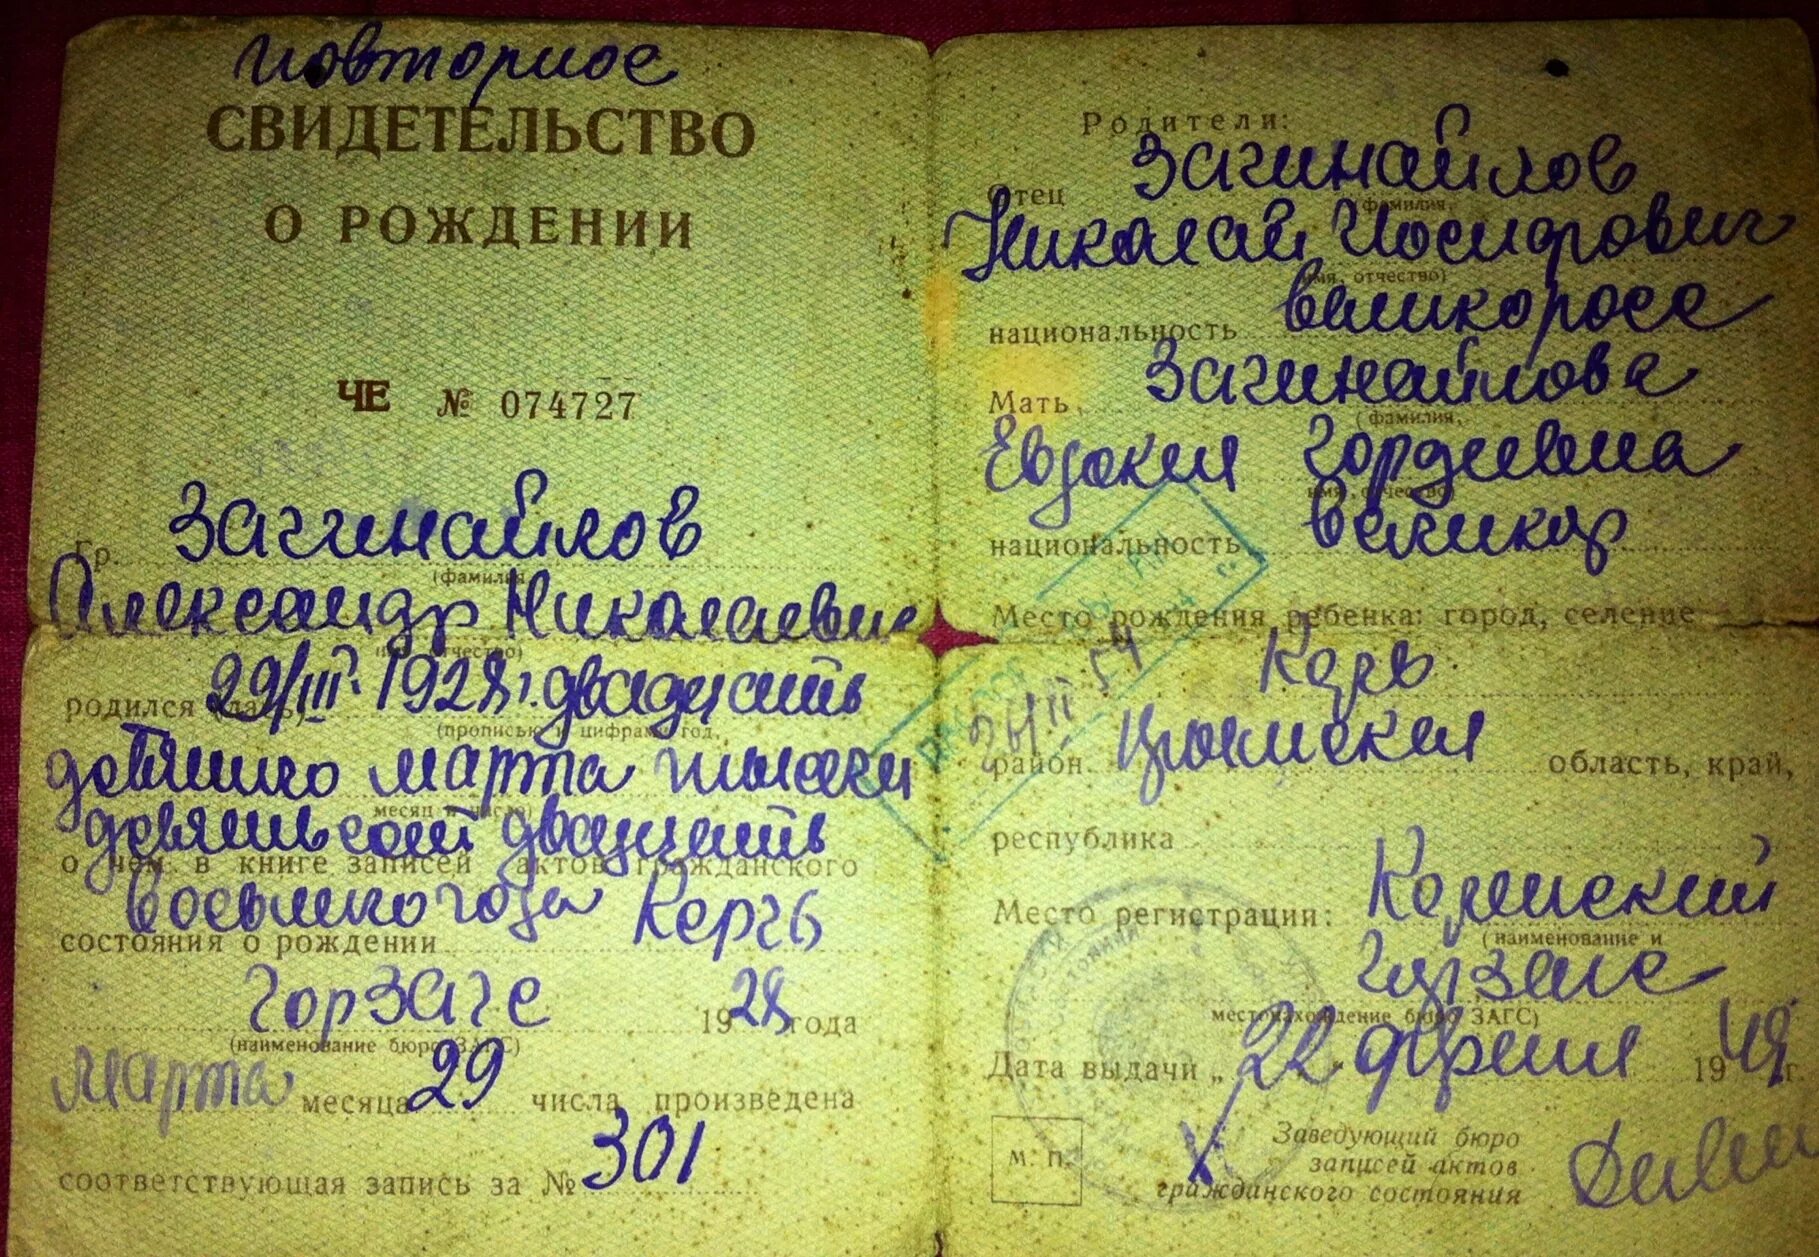 повторное
СВИДЕТЕЛЬСТВО
О РОЖДЕНИИ
ЧЕ № 074727
Гр. Загинайлов
(фамилия,
Александр Николаевич
отчество)
родился 29/III. 1928 г. двадцать
(прописью и цифрами год,
девятого марта тысяча
месяц и число)
девятьсот двадцать
о чем в книге записей актов гражданского
восьмого года Керчь
состояния о рождении
горзагс 1928 года
(наименование бюро ЗАГС)
марта месяца 29 числа произведена
соответствующая запись за № 301
Родители:
Отец Загинайлов
(фамилия,
Николай Иосифович
имя, отчество)
национальность великоросс
Мать Загинайлова
(фамилия,
Евдокия Гордеевна
имя, отчество)
национальность великор
Место рождения ребенка: город, селение
Керч
район Крымская область, край,
республика
Место регистрации: Керченский
(наименование и
Горзагс
местонахождение бюро ЗАГС)
Дата выдачи „22" февраля 1949 г.
М. П.
Заведующий бюро
записей актов
гражданского состояния